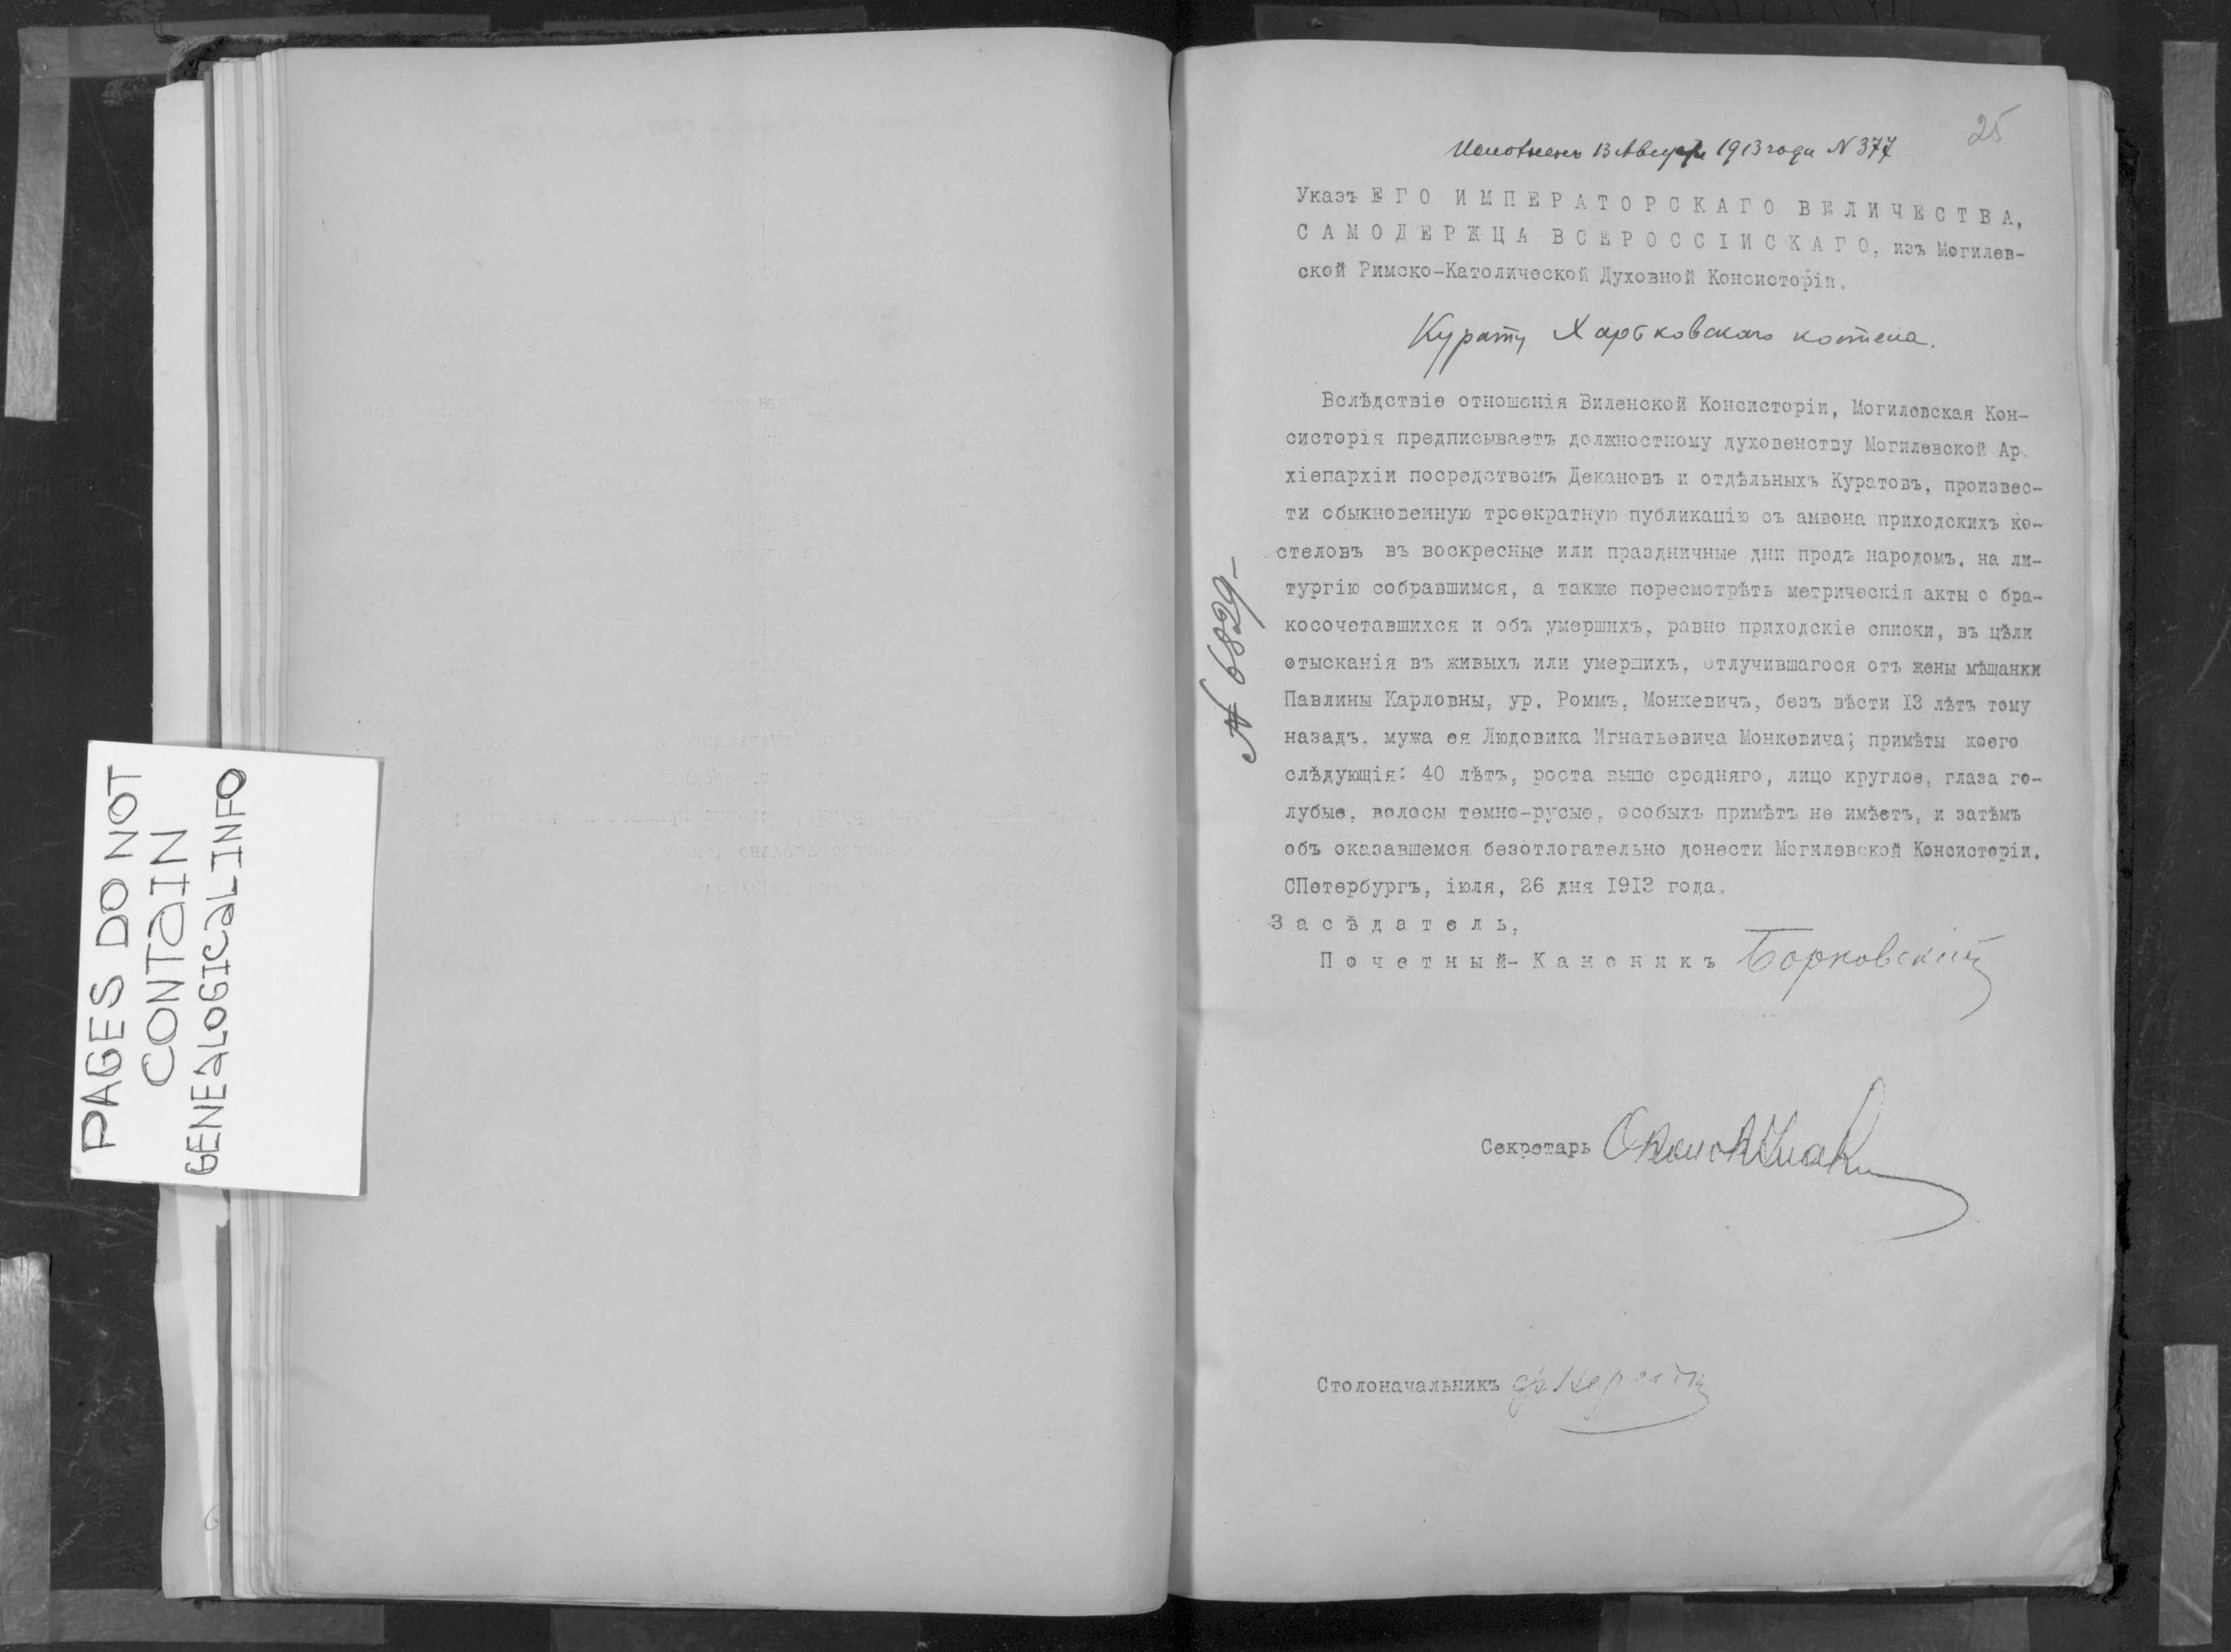 PAGES DO NOT
CONTAIN
GENEALOGICAL INFO
25
Исполнено 13 Августа 1913 года N 377
Указъ ЕГО ИМПЕРАТОРСКАГО ВЕЛИЧЕСТВА,
САМОДЕРЖЦА ВСЕРОССІЙСКАГО, изъ Могилев-
ской Римско-Католической Духовной Консисторіи.
Курату Харьковскаго костела.
Вслѣдствіе отношенія Виленской Консисторіи, Могилевская Кон-
систорія предписываетъ должностному духовенству Могилевской Ар
хіепархіи посредствомъ Декановъ и отдѣльныхъ Куратовъ, произвес-
ти обыкновенную троекратную публикацію съ амвона приходскихъ ко-
стеловъ въ воскресные или праздничные дни предъ народомъ, на ли-
тургію собравшимся, а также пересмотрѣть метрическія акты о бра-
косочетавшихся и объ умершихъ, равно приходскіе списки, въ цѣли
отысканія въ живыхъ или умершихъ, отлучившагося отъ жены мѣщанки
Павлины Карловны, ур. Роммъ, Монкевичъ, безъ вѣсти 13 лѣтъ тому
назадъ, мужа ея Людовика Игнатьевича Монкевича; примѣты коего
слѣдующія: 40 лѣтъ, роста выше средняго, лицо круглое, глаза го-
лубые, волосы темно-русые, особыхъ примѣтъ не имѣетъ, и затѣмъ
объ оказавшемся безотлогательно донести Могилевской Консисторіи.
СПетербургъ, іюля, 26 дня 1913 года.
№ 6829-
Засѣдатель,
Почетный-Каноникъ Борковскій
Секретарь
Столоначальникъ